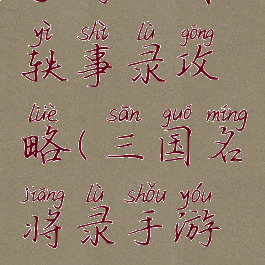 yì shì lù gōng
轶事录攻
lüè sān guó míng
略(三国名
jiāng lù shǒu yóu
将录手游